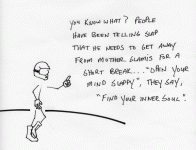 YOU KNOW WHAT? PEOPLE
HAVE BEEN TELLING SLAP
THAT HE NEEDS TO GET AWAY
FROM MOTHER GLAMIS FOR A
SHORT BREAK... "OPEN YOUR
MIND SLAPPY", THEY SAY,
"FIND YOUR INNER SOUL".